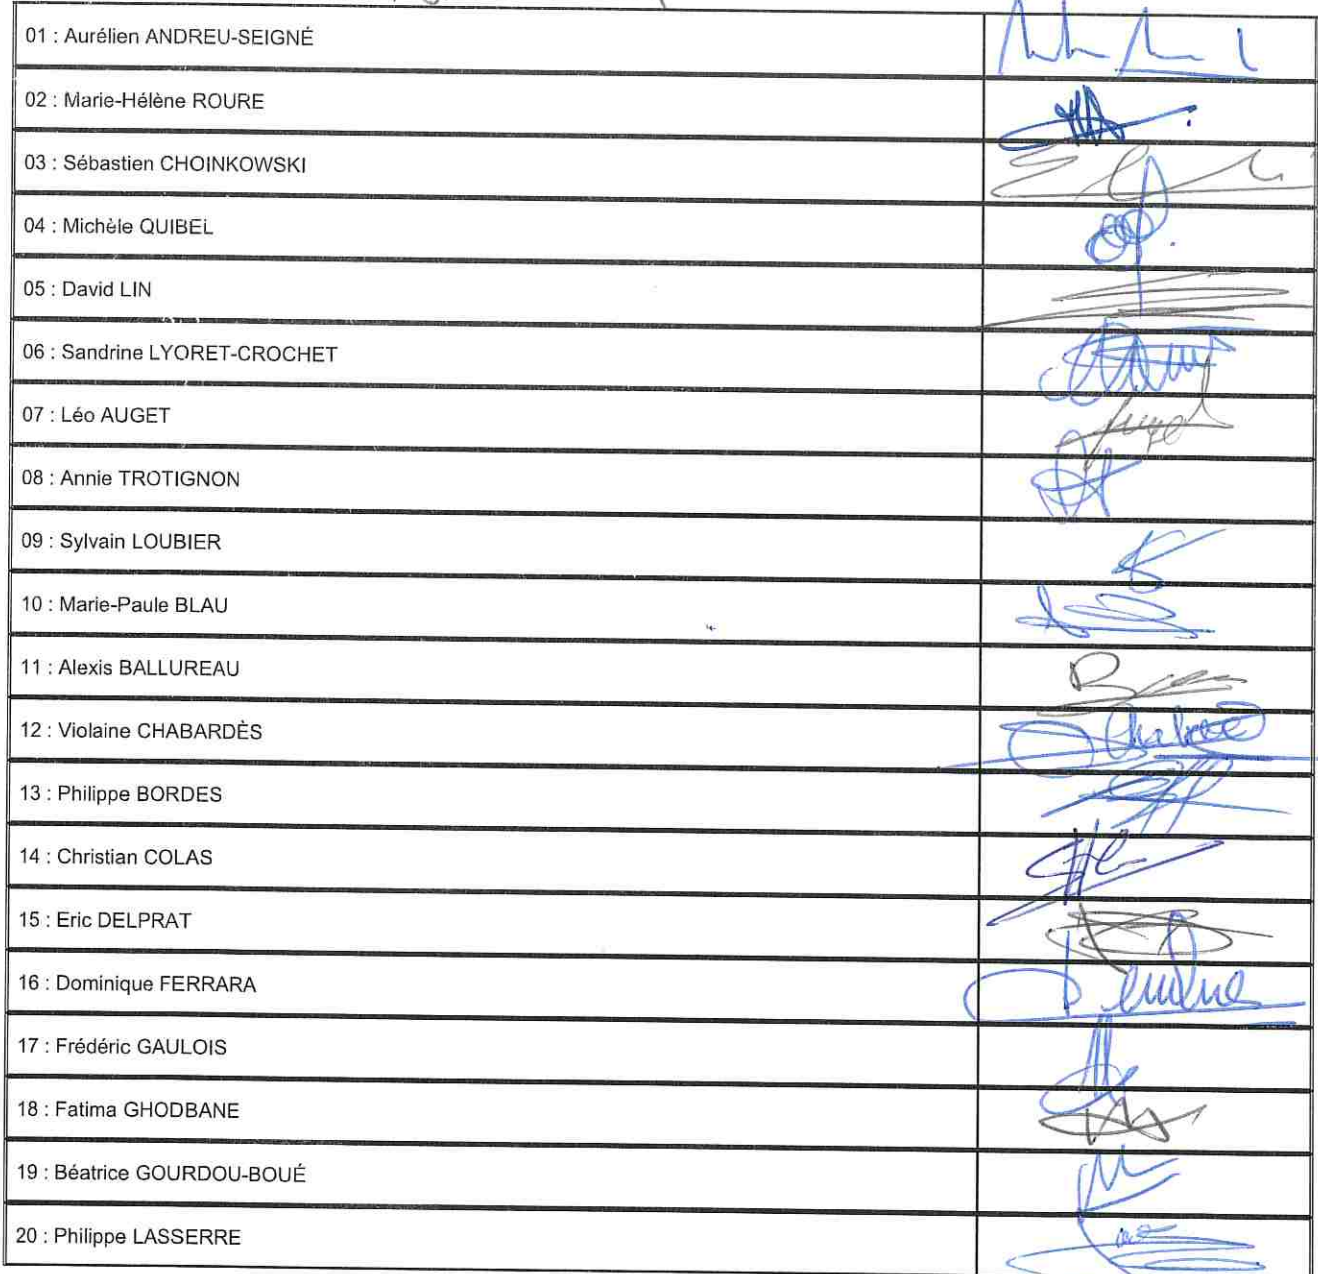 01 : Aurélien ANDREU-SEIGNÉ
02 : Marie-Hélène ROURE
03 : Sébastien CHOINKOWSKI
04 : Michèle QUIBEL
05 : David LIN
06 : Sandrine LYORET-CROCHET
07 : Léo AUGET
08 : Annie TROTIGNON
09 : Sylvain LOUBIER
10 : Marie-Paule BLAU
11 : Alexis BALLUREAU
12 : Violaine CHABARDÈS
13 : Philippe BORDES
14 : Christian COLAS
15 : Eric DELPRAT
16 : Dominique FERRARA
17 : Frédéric GAULOIS
18 : Fatima GHODBANE
19 : Béatrice GOURDOU-BOUÉ
20 : Philippe LASSERRE